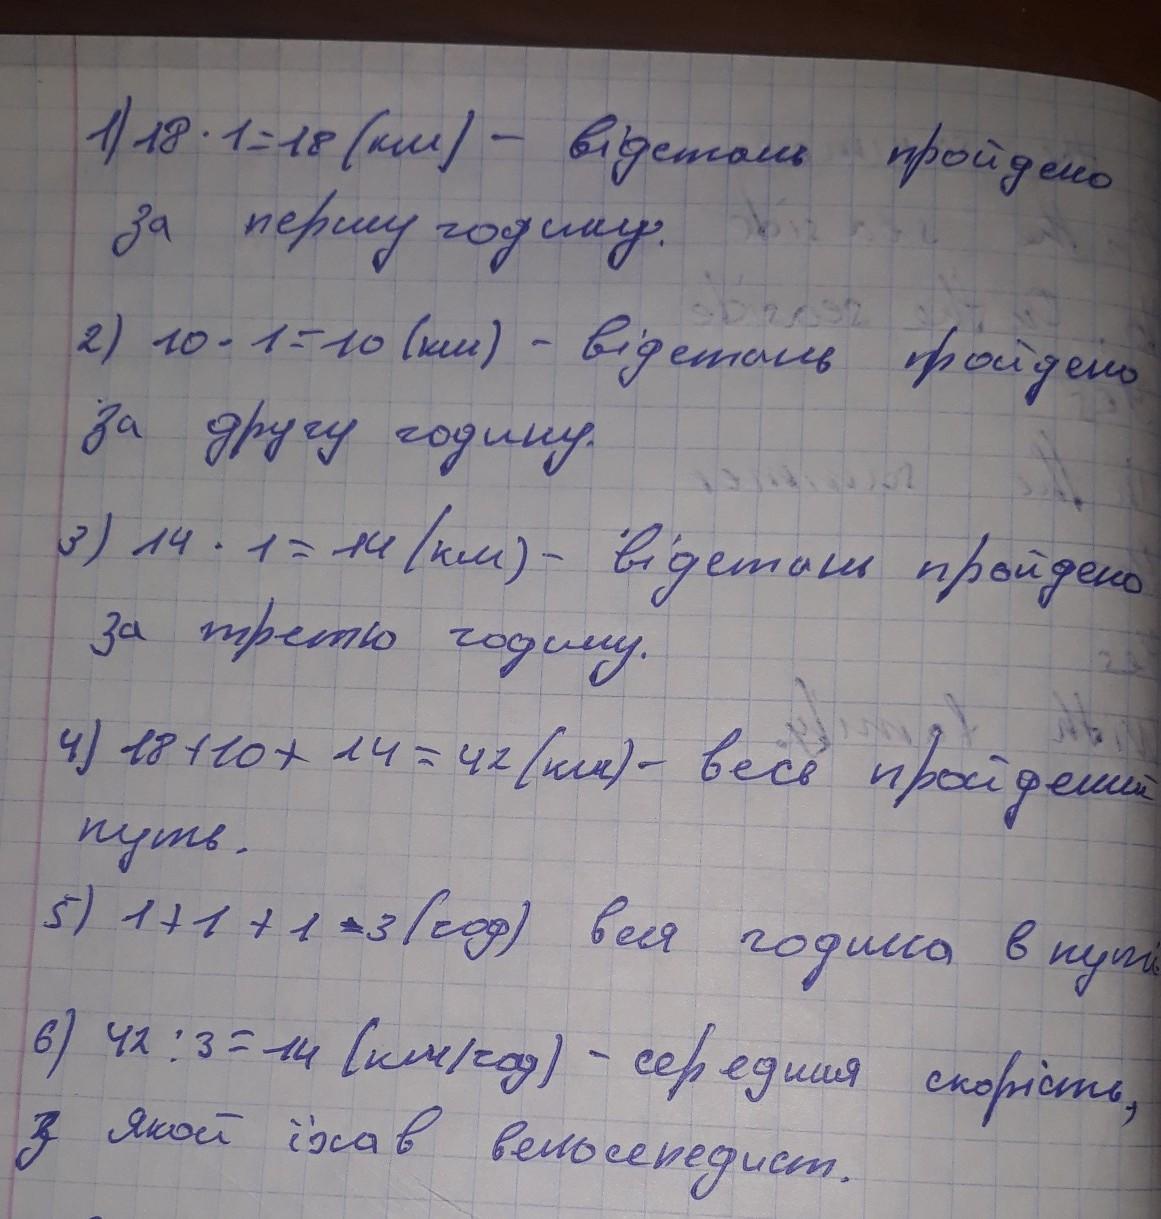 1) 18 · 1 = 18 (км) – відстань пройдено
за першу годину.
2) 10 · 1 = 10 (км) – відстань пройдено
за другу годину.
3) 14 · 1 = 14 (км) – відстань пройдено
за третю годину.
4) 18 + 10 + 14 = 42 (км) – весь пройдений
путь.
5) 1 + 1 + 1 = 3 (год) вся година в путі
6) 42 : 3 = 14 (км/год) – середня скорість,
з якой їхав велосепедист.